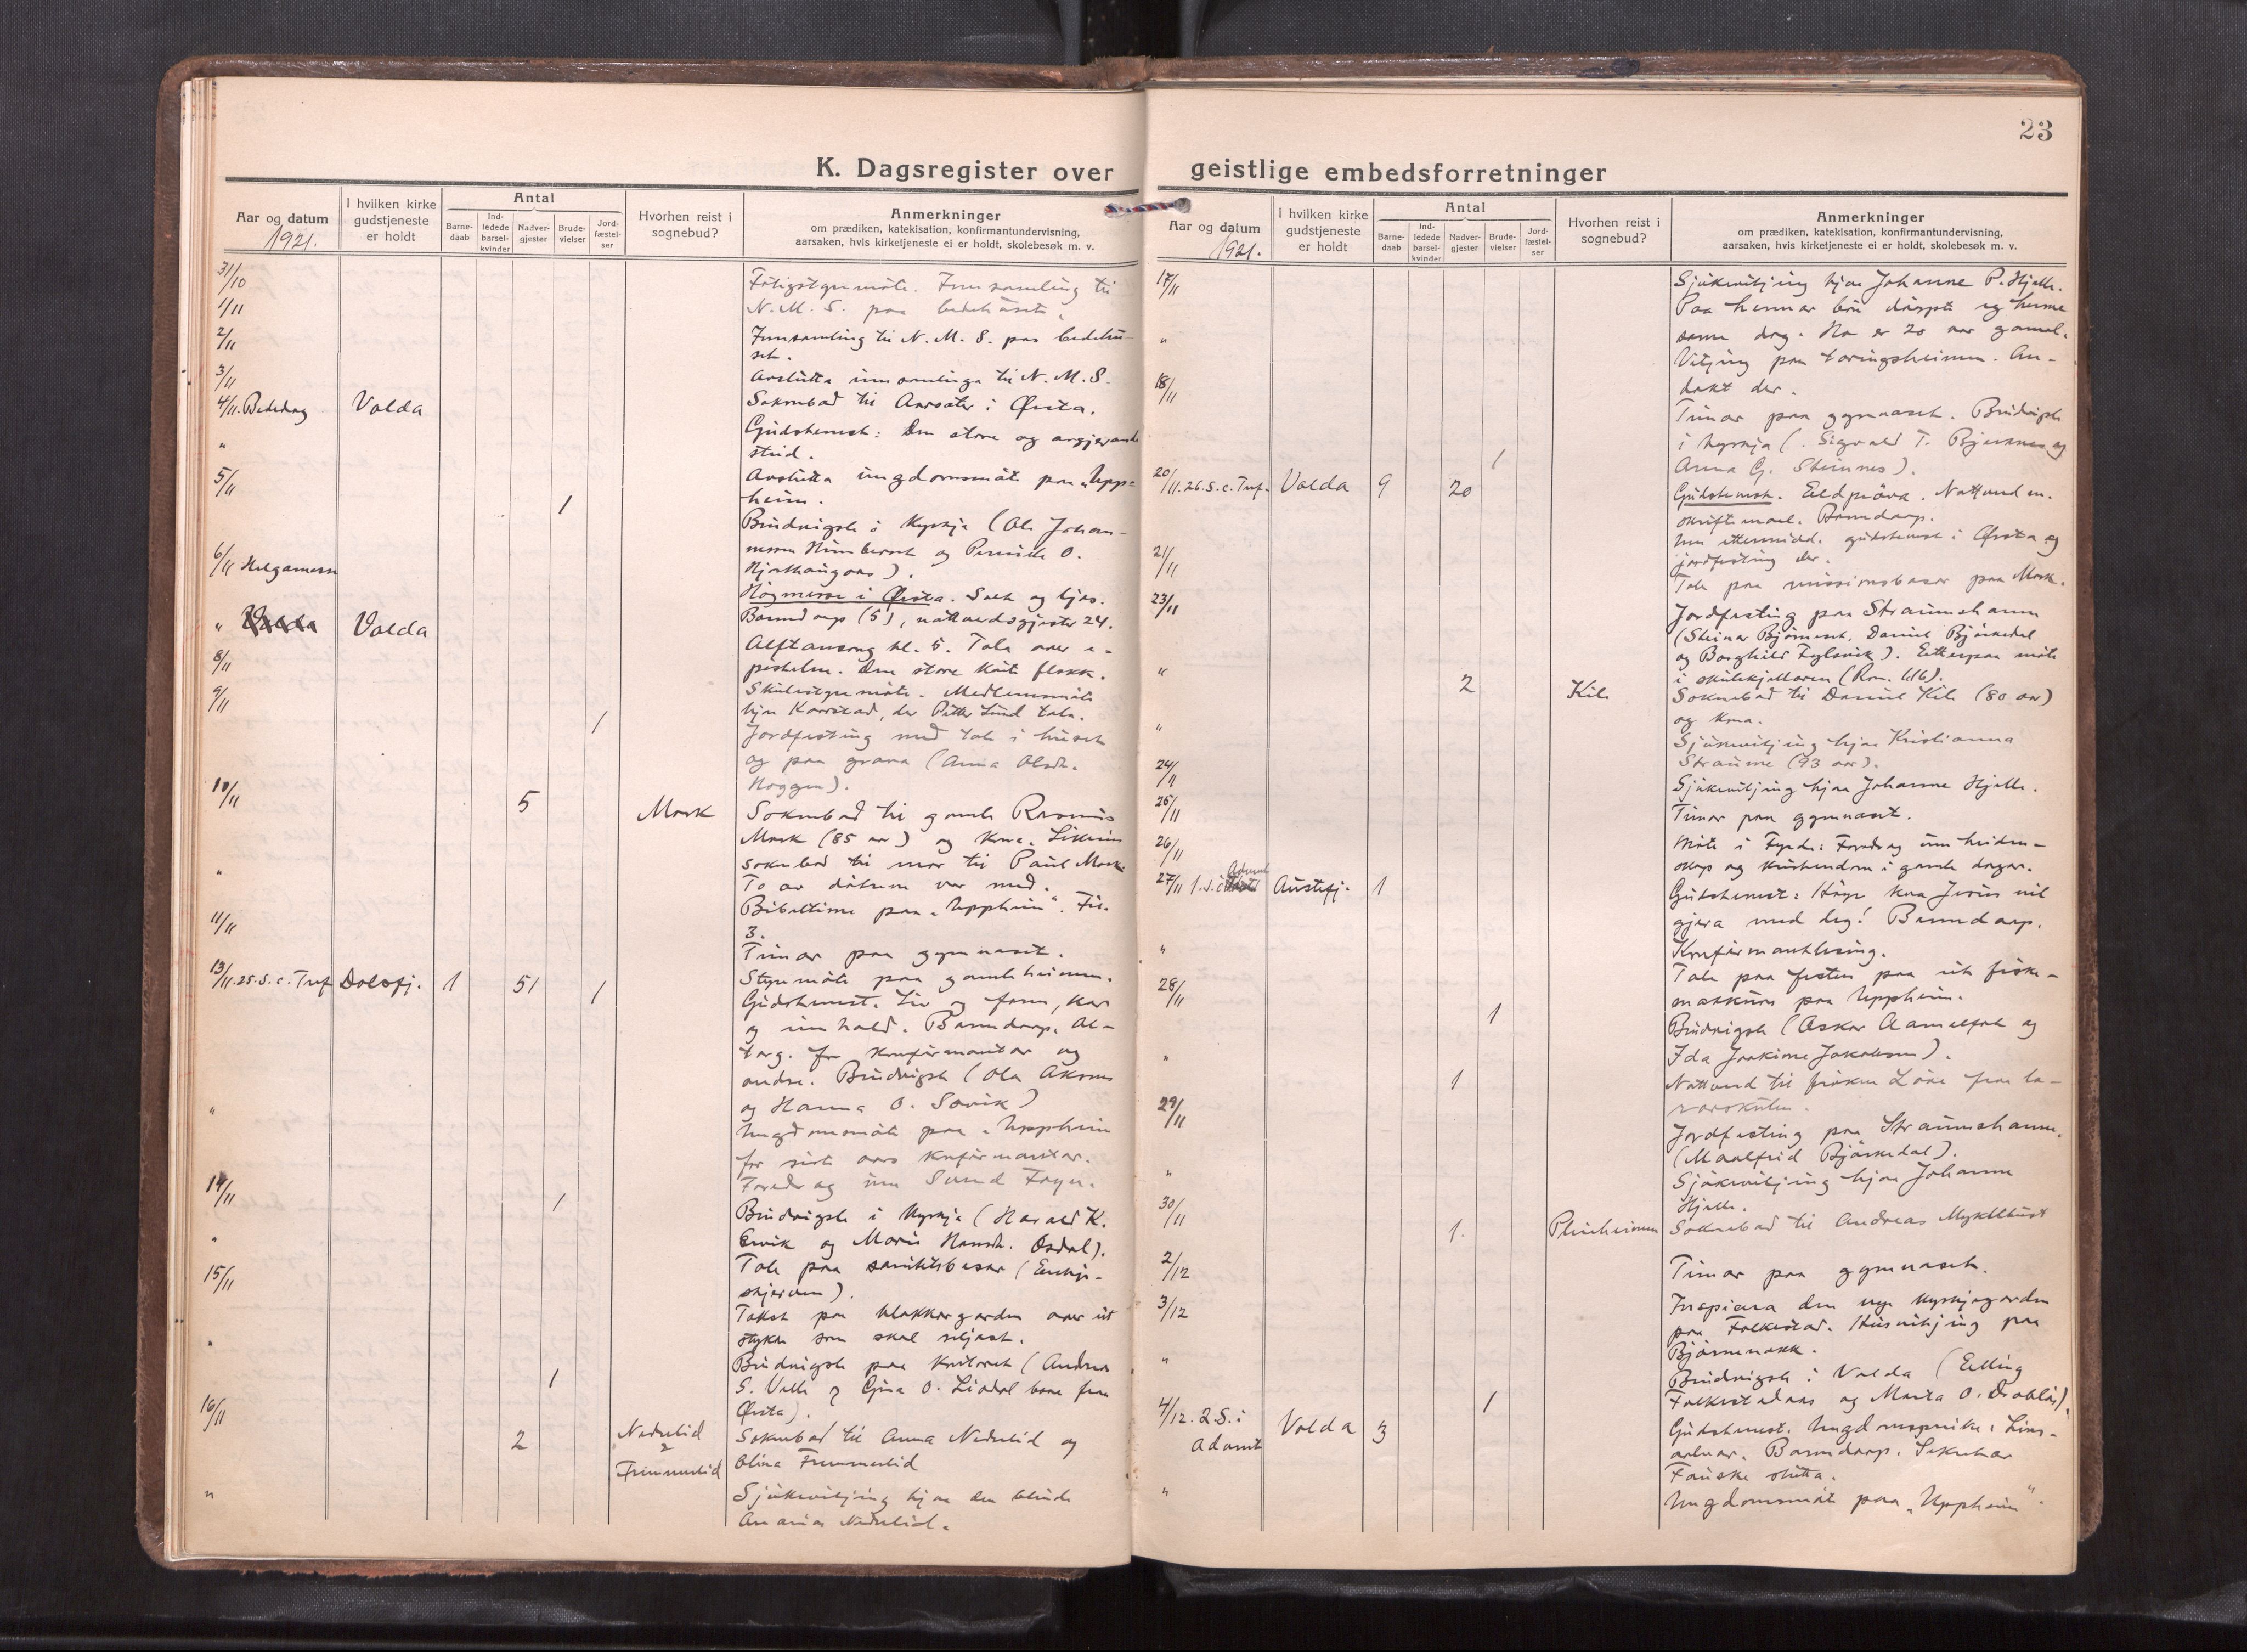 23
K. Dagsregister over geistlige embedsforretninger
Aar og datum
1921.
I hvilken kirke
gudstjeneste
er holdt
Antal
Barne-
daab
Ind-
ledede
barsel-
kvinder
Nadver-
gjester
Brude-
vielser
Jord-
fæstel-
ser
Hvorhen reist i
sognebud?
Anmerkninger
om prædiken, katekisation, konfirmantundervisning,
aarsaken, hvis kirketjeneste ei er holdt, skolebesøk m. v.
31/10 Fatigstyremöte. Innsamling til
1/11 N. M. S. paa bedehuset.
2/11 Innsamling til N. M. S. paa bedehu-
set.
3/11 Avslutta innsamlinga til N. M. S.
4/11. Bededag Volda Soknebod til Aarsæter i Ørsta.
Gudstenest: Den store og avgjerande
" strid.
5/11 Avslutta ungdomsmöte paa "Upp=
heim.
1
Brudvigsle i kyrkja (Ole Johan-
6/11 Helgamesse
Högmesse i Ørsta. Salt og ljos.
" Volda Barnedaap (5), nattverdsgjester 24.
Aftansong kl. 5. Tala over e-
8/11 pistelen. Den store kvite flokk.
Skulestyremöte. Medlemsmöte
9/11 hjaa Kaarstad, der Petter Lund tala.
1 Jordfesting med tale i huset
og paa grava (Anna Olsdtr.
Hoggen).
10/11 5 Mork Soknebod til gamle Rasmus
Mork (85 aar) og kona. Likeins
soknebod til mor til Paul Mork.
" To av döturne var med.
Bibeltime paa "Uppheim". Fil.
11/11 3.
Timar paa gymnaset.
13/11. 25. S. e. Tref. Dalsfj. 1 51 1 Styremöte paa gamleheimen.
Gudstenest. Liv og form, kar
og innhald. Barnedaap. Al-
targ. for konfirmantar og
andre. Brudvigsle (Ola Aksnes
" og Hanna O. Søvik)
Ungdomsmöte paa "Uppheim
for siste aars konfirmantar.
Foredrag um Svend Foyn.
14/11 1 Brudvigsle i kyrkja (Harald K.
" Ervik og Marie Hansdtr. Osdal).
Tale paa sanitetsbasar (Enkje-
15/11 skjerven).
Takst paa klokkargarden over eit
stykke som skal seljast.
" Brudvigsle paa kontoret (Andreas
1 S. Velle og Gina O. Liadal bae fraa
16/11 Ørsta).
2 Nedrelid Soknebod til Anna Nedrelid og
Frimmerlid Olina Frimmerlid
" Sjukevitjing hjaa den blinde
Ananias Nedrelid.
Aar og datum
1921.
I hvilken kirke
gudstjeneste
er holdt
Antal
Barne-
daab
Ind-
ledede
barsel-
kvinder
Nadver-
gjester
Brude-
vielser
Jord-
fæstel-
ser
Hvorhen reist i
sognebud?
Anmerkninger
om prædiken, katekisation, konfirmantundervisning,
aarsaken, hvis kirketjeneste ei er holdt, skolebesøk m. v.
17/11 Sjukevitjing hjaa Johanne P. Hjelle.
Paa hennar bön döypt eg henne
same dag. Ho er 20 aar gamal.
" Vitjing paa tæringsheimen. An-
18/11 dakt der.
Timar paa gymnaset. Brudvigsle
i kyrkja (Sigvald T. Bjerknes og
1 Anna G. Steinnes).
20/11. 26. S. e. Tref. Volda 9 20 Gudstenest. Eldpröva. Nattverd m.
skriftemaal. Barnedaap.
Um ettermidd. gudstenest i Ørsta og
21/11 jordfesting der.
Tale paa missionsbasar paa Mork.
23/11 Jordfesting paa Straumshamn
(Steinar Björneset, Daniel Björkedal
og Borghild Fylsvik). Etterpaa möte
" i skulekjellaren (Rom. 1,16).
2 Kile Soknebod til Daniel Kile (80 aar)
og kona.
" Sjukevitjing hjaa Kristianna
Straume (93 aar).
24/11 Sjukevitjing hjaa Johanne Hjelle.
25/11 Timar paa gymnaset.
26/11 Möte i Fyrde: Foredrag um heiden-
skap og kristendom i gamle dagar.
27/11 1. s. i Advent Austefj. 1 Gudstenest: Höyr kva Jesus vil
gjera med deg! Barnedaap.
" Konfirmantlesing.
Tale paa festen paa
28/11 paa Uppheim.
1 Brudvigsle (Oskar Aamelfot og
" Ida Joakime Jakobsen).
1 Nattverd til fröken Löse fraa læ-
29/11 rarskulen.
Jordfesting paa Straumshamn.
(Maalfrid Björkedal).
" Sjukevitjing hjaa Johanne
30/11 Hjelle.
1. Pleieheimen Soknebod til Andreas Myklebust
2/12 Timar paa gymnaset.
3/12 Inspisera den nye kyrkjegarden
paa Folkestad. Husvitjing paa
Björnenakk.
" Brudvigsle i Volda (Elling
1 Folkestadaas og Marta O. Drabløs).
4/12. 2. S. i Advent Volda 3 Gudstenest. Ungdomspreike: Livs-
Barnedaap. Sekretær
Fauske slutta.
" Ungdomsmöte paa "Uppheim".